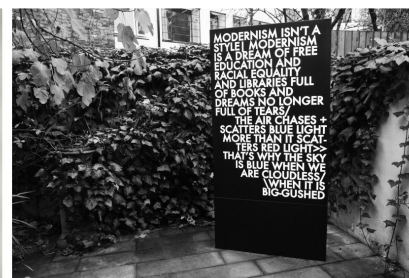 MODERNISM ISN'T A
STYLE| MODERNISM
IS A DREAM OF FREE
EDUCATION AND
RACIAL EQUALITY
AND LIBRARIES FULL
OF BOOKS AND
DREAMS NO LONGER
FULL OF TEARS/
THE AIR CHASES +
SCATTERS BLUE LIGHT
MORE THAN IT SCAT-
TERS RED LIGHT>>
THAT'S WHY THE SKY
IS BLUE WHEN WE
ARE CLOUDLESS/
\WHEN IT IS
BIG-GUSHED